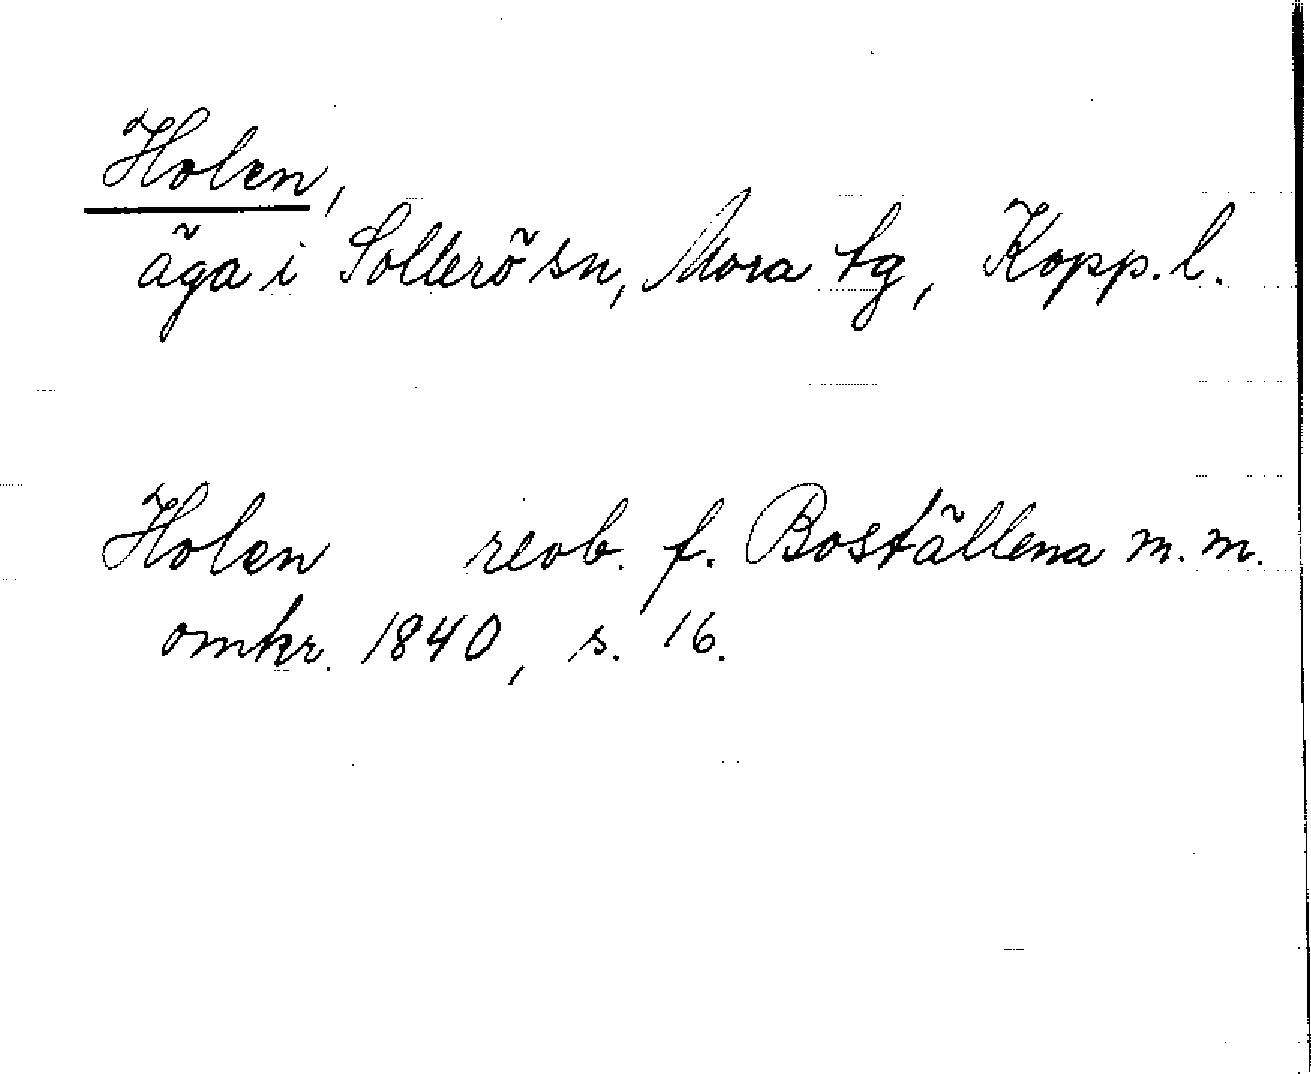 Holen,
äga i Sollerö sn, Mora tg, Kopp. l.
Holen reob. f. Boställena m. m.
omkr. 1840, s. 16.